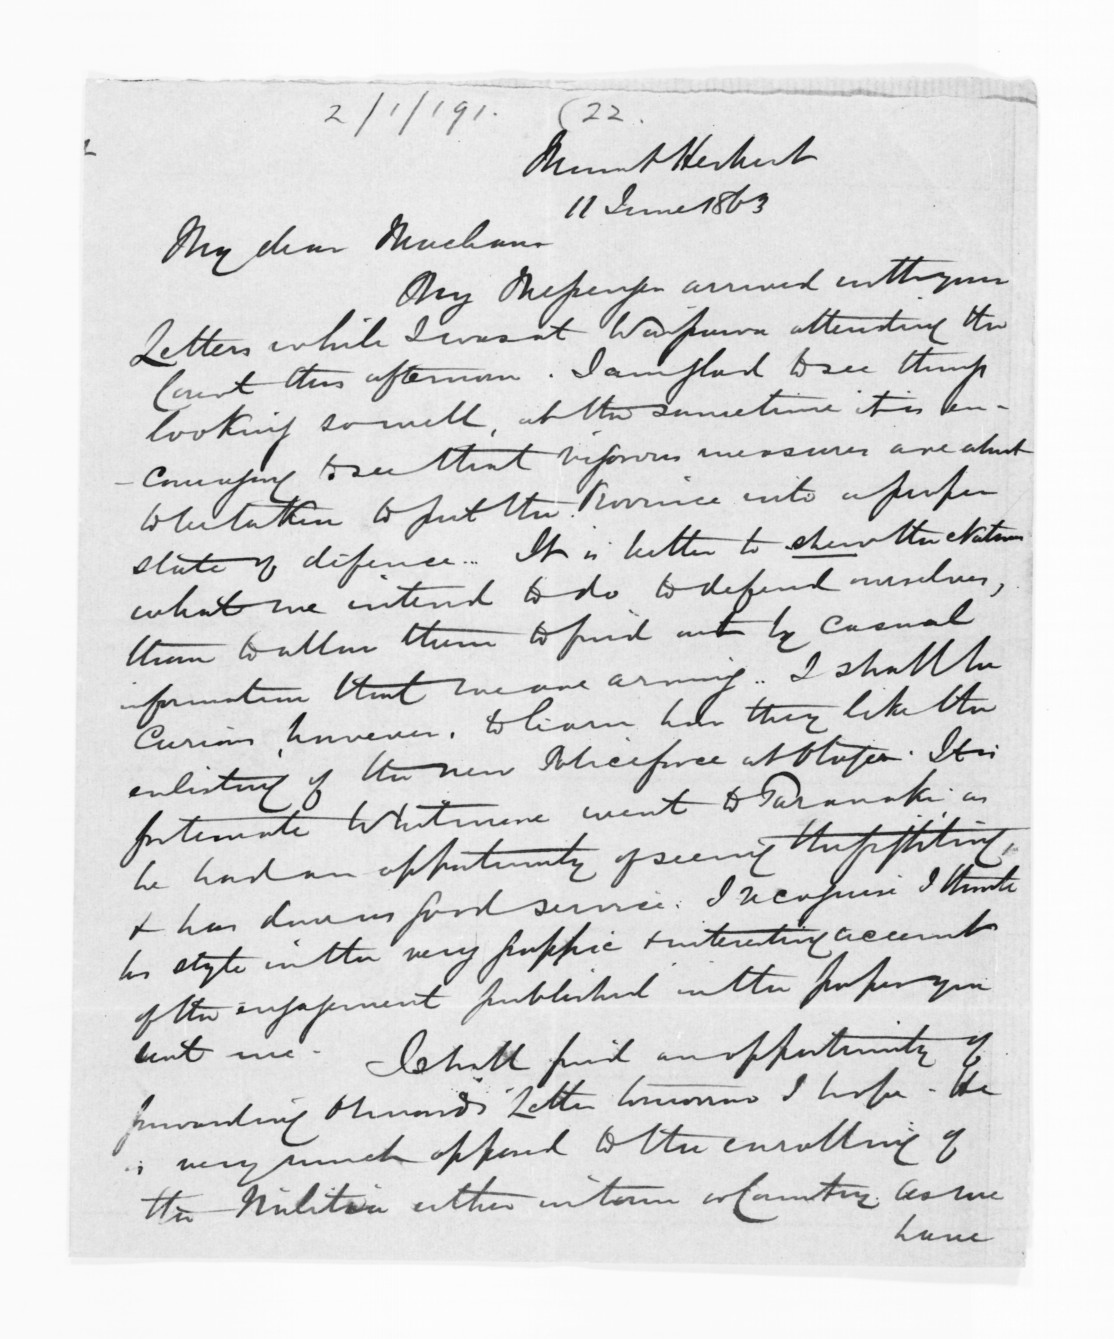 2/1/191. (22.
Mount Herbert
11 June 1863
My dear Maclean
My Messenger arrived with your
Letters while I was at Waipawa attending the
Court this afternoon. I am glad to see things
looking so well, at the same time it is en-
-couraging to see that vigorous measures are about
to be taken to put the Province into a proper
state of defence.. It is better to shew the Natives
what we intend to do to defend ourselves,
than to allow them to find out by casual
information that we are arming.. I shall be
curious, however, to learn how they like the
enlisting of the new Police force at Napier. It is
fortunate Whitmore went to Taranaki as
he had an opportunity of seeing the fighting,
& has done us good service. I recognise I think
his style in the very graphic & interesting account
of the engagement published in the paper you
sent me. I shall find an opportunity of
forwarding Ormond's Letter tomorrow I hope. He
is very much opposed to the enrolling of
the Militia either in town or Country. As we
have